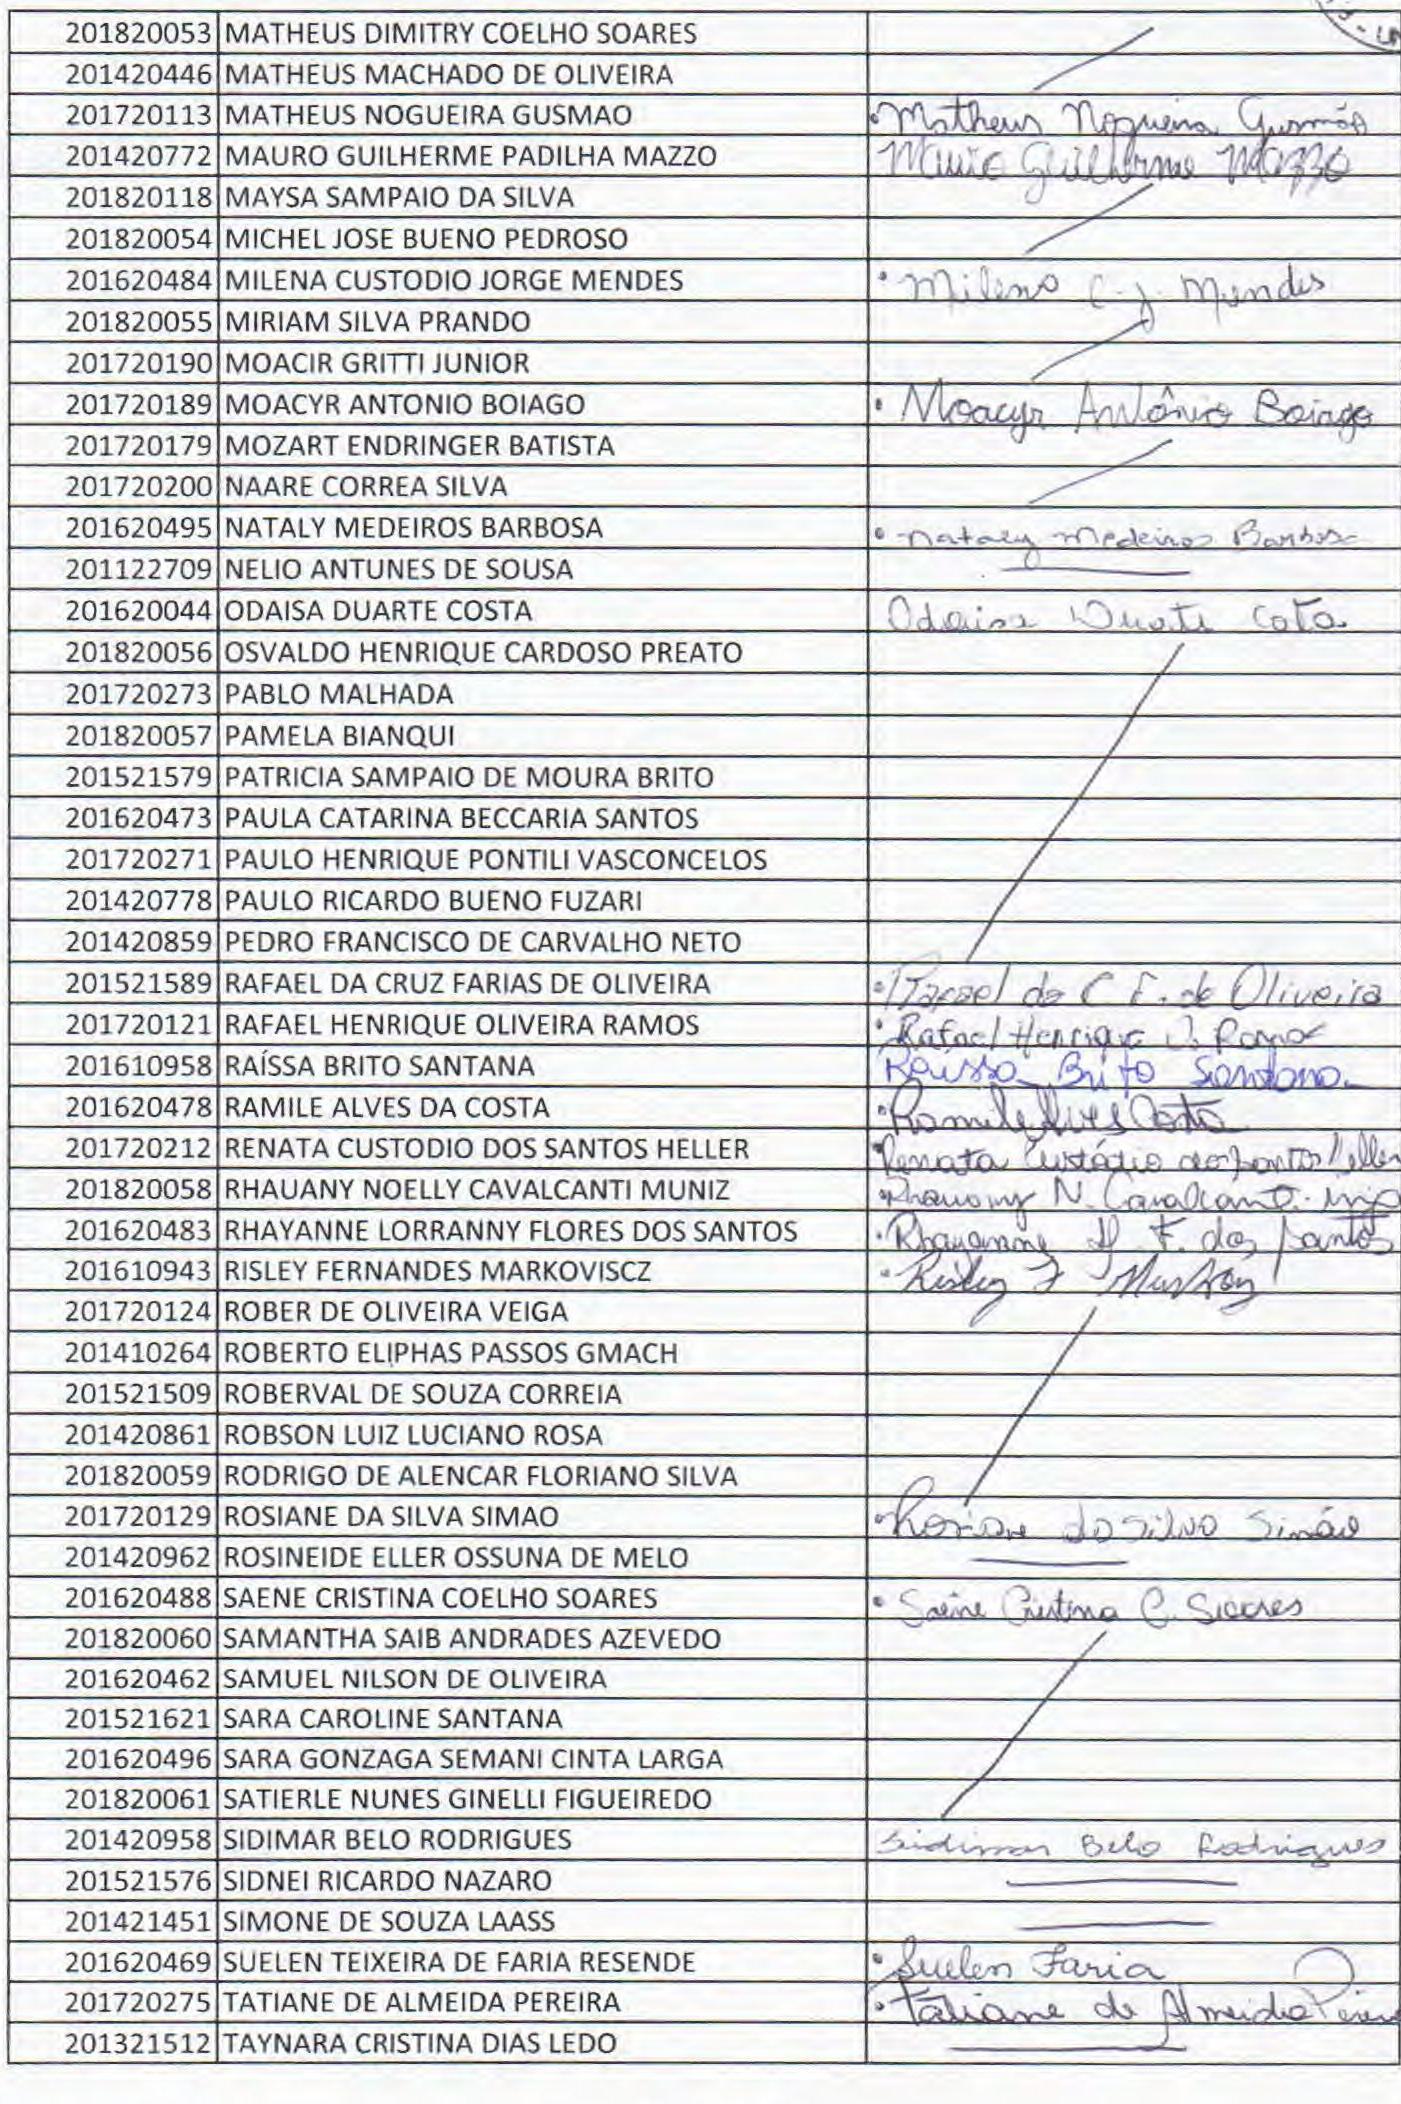 201820053 MATHEUS DIMITRY COELHO SOARES
201420446 MATHEUS MACHADO DE OLIVEIRA
201720113 MATHEUS NOGUEIRA GUSMAO Matheus Nogueira Gusmão
201420772 MAURO GUILHERME PADILHA MAZZO Mauro Guilherme Mazzo
201820118 MAYSA SAMPAIO DA SILVA
201820054 MICHEL JOSE BUENO PEDROSO
201620484 MILENA CUSTODIO JORGE MENDES Milena C. J. Mendes
201820055 MIRIAM SILVA PRANDO
201720190 MOACIR GRITTI JUNIOR
201720189 MOACYR ANTONIO BOIAGO Moacyr Antônio Boiago
201720179 MOZART ENDRINGER BATISTA
201720200 NAARE CORREA SILVA
201620495 NATALY MEDEIROS BARBOSA Nataly Medeiros Barbosa
201122709 NELIO ANTUNES DE SOUSA
201620044 ODAISA DUARTE COSTA Odaisa Duarte Costa
201820056 OSVALDO HENRIQUE CARDOSO PREATO
201720273 PABLO MALHADA
201820057 PAMELA BIANQUI
201521579 PATRICIA SAMPAIO DE MOURA BRITO
201620473 PAULA CATARINA BECCARIA SANTOS
201720271 PAULO HENRIQUE PONTILI VASCONCELOS
201420778 PAULO RICARDO BUENO FUZARI
201420859 PEDRO FRANCISCO DE CARVALHO NETO
201521589 RAFAEL DA CRUZ FARIAS DE OLIVEIRA Rafael da C. F. de Oliveira
201720121 RAFAEL HENRIQUE OLIVEIRA RAMOS Rafael Henrique O. Ramos
201610958 RAÍSSA BRITO SANTANA Raissa Brito Santana
201620478 RAMILE ALVES DA COSTA Ramile Alves Costa
201720212 RENATA CUSTODIO DOS SANTOS HELLER Renata Custódio dos Santos Heller
201820058 RHAUANY NOELLY CAVALCANTI MUNIZ Rhauany N. Cavalcanti
201620483 RHAYANNE LORRANNY FLORES DOS SANTOS Rhayanne L F. dos Santos
201610943 RISLEY FERNANDES MARKOVISCZ Risley F
201720124 ROBER DE OLIVEIRA VEIGA
201410264 ROBERTO ELIPHAS PASSOS GMACH
201521509 ROBERVAL DE SOUZA CORREIA
201420861 ROBSON LUIZ LUCIANO ROSA
201820059 RODRIGO DE ALENCAR FLORIANO SILVA
201720129 ROSIANE DA SILVA SIMAO Rosiane da Silva Simão
201420962 ROSINEIDE ELLER OSSUNA DE MELO
201620488 SAENE CRISTINA COELHO SOARES Saene Cristina C. Soares
201820060 SAMANTHA SAIB ANDRADES AZEVEDO
201620462 SAMUEL NILSON DE OLIVEIRA
201521621 SARA CAROLINE SANTANA
201620496 SARA GONZAGA SEMANI CINTA LARGA
201820061 SATIERLE NUNES GINELLI FIGUEIREDO
201420958 SIDIMAR BELO RODRIGUES Sidimar Belo Rodrigues
201521576 SIDNEI RICARDO NAZARO
201421451 SIMONE DE SOUZA LAASS
201620469 SUELEN TEIXEIRA DE FARIA RESENDE Suelen Faria
201720275 TATIANE DE ALMEIDA PEREIRA Tatiane de Almeida
201321512 TAYNARA CRISTINA DIAS LEDO